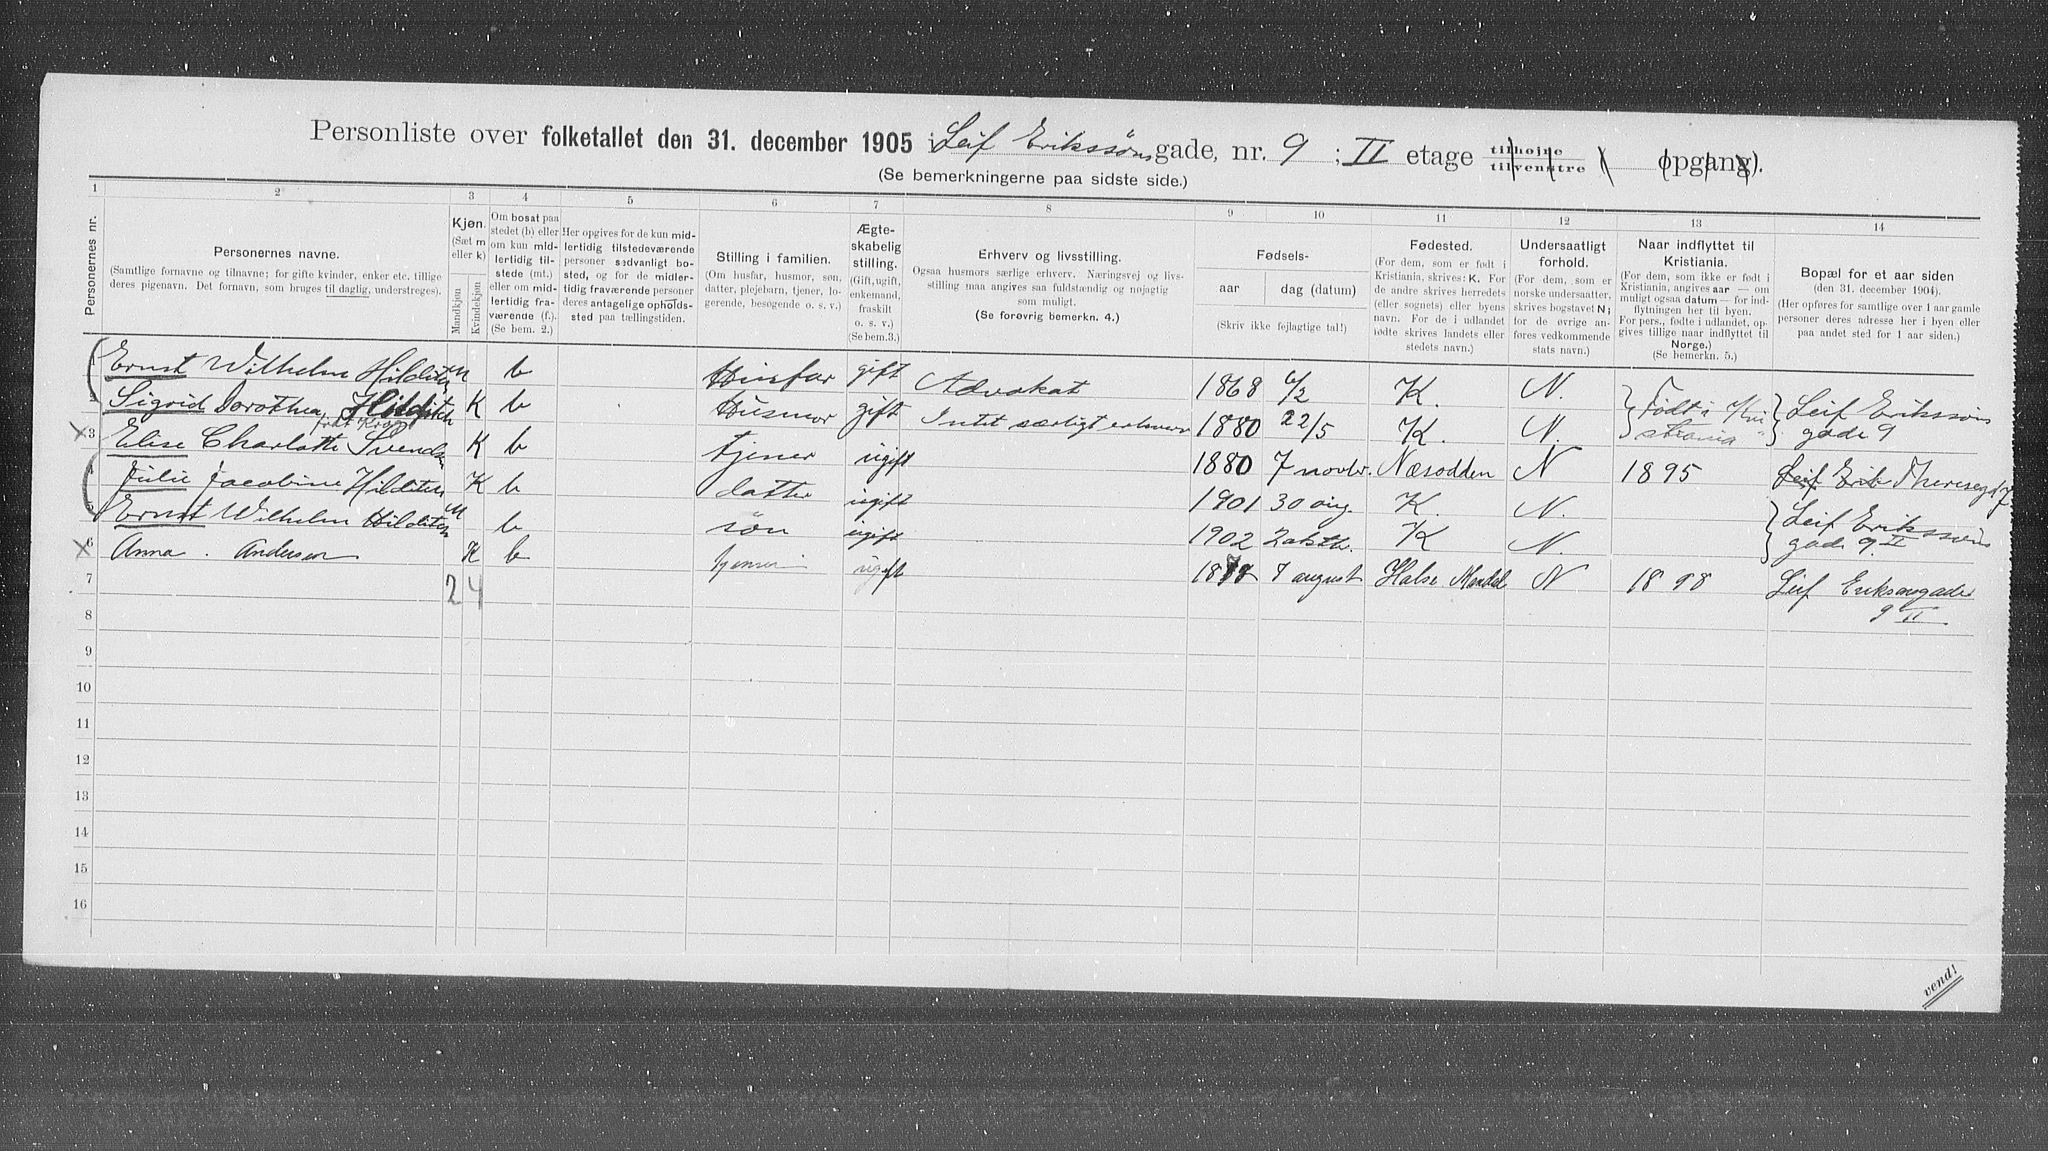 Personliste over folketallet den 31. december 1905 i Leif Erikssøns gade, nr. 9 ; II etage tilhøjre tilvenstre ( opgang).
(Se bemerkningerne paa sidste side.)
1 2 3 4 5 6 7 8 9 10 11 12 13 14
Personernes nr.
Personernes navne.
(Samtlige fornavne og tilnavne; for gifte kvinder, enker etc. tillige
deres pigenavn. Det fornavn, som bruges til daglig, understreges).
Kjøn.
(Sæt m
eller k)
Mandkjøn
Kvindekjøn
Om bosat paa
stedet (b) eller
om kun mid-
lertidig til-
stede (mt.)
eller om mid-
lertidig fra-
værende (f.).
(Se bem. 2.)
Her opgives for de kun mid-
lertidig tilstedeværende
personer sædvanligt bo-
sted, og for de midler-
tidig fraværende personer
deres antagelige opholds-
sted paa tællingstiden.
Stilling i familien.
(Om husfar, husmor, søn,
datter, plejebarn, tjener, lo-
gerende, besøgende o. s. v.)
Ægte-
skabelig
stilling.
(Gift, ugift,
enkemand,
fraskilt
o. s. v.)
(Se bem.3.)
Erhverv og livsstilling.
Ogsaa husmors særlige erhverv. Næringsvej og livs-
stilling maa angives saa fuldstændig og nøjagtig
som muligt.
(Se forøvrig bemerkn. 4.)
Fødsels-
aar
dag (datum)
(Skriv ikke fejlagtige tal!)
Fødested.
(For dem, som er født i
Kristiania, skrives: K. For
de andre skrives herredets
(eller sognets) eller byens
navn. For de i udlandet
fødte skrives landets eller
stedets navn.)
Undersaatligt
forhold.
(For dem, som er
norske undersaatter,
skrives bogstavet N;
for de øvrige an-
føres vedkommende
stats navn.)
Naar indflyttet til
Kristiania.
(For dem, som ikke er født i
Kristiania, angives aar — om
muligt ogsaa datum — for ind-
flytningen her til byen.
For pers., fødte i udlandet, op-
gives tillige naar indflyttet til
Norge.)
(Se bemerkn. 5.)
Bopæl for et aar siden
(den 31. december 1904).
(Her opføres for samtlige over 1 aar gamle
personer deres adresse her i byen eller
paa andet sted for 1 aar siden.)
Ernst Wilhelm Hilditch m b Husfar gift Advokat 1868 6/2 K. N. Født i Kri Leif Erikssøns
Sigrid Dorothea Hilditch K b Husmor gift Intet særligt erhverv 1880 22/5 K. N. stiania gade 9
født Krog
3 Elise Charlotte Svendsen K b tjener ugift 1880 7 novbr. Næsodden N 1895 Leif Erik Theresegd 7
4 Julie Jacobine Hilditch K b datter ugift 1901 30 aug. K. N. Leif Erikssøns
5 Ernst Wilhelm Hilditch m b søn ugift 1902 2 oktbr. K N. gade 9 II
6 Anna Andersen K b tjener ugift 1878 7 august Halse Mandal N 1898 Leif Eriksønsgade
9 II
7 2 4
8
9
10
11
12
13
14
15
16
vend!